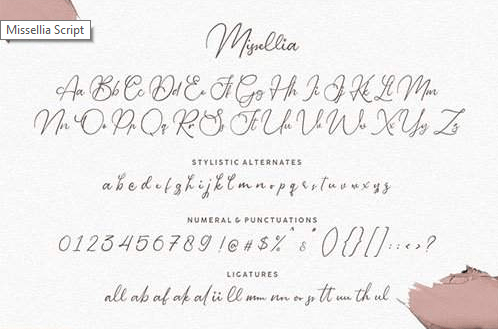 Missellia Script
Missellia
Aa Bb Cc Dd Ee Ff Gg Hh Ii Jj Kk Ll Mm
Nn Oo Pp Qq Rr Ss Tt Uu Vv Ww Xx Yy Zz
STYLISTIC ALTERNATES
a b c d e f g h i j k l m n o p q r s t u v w x y z
NUMERAL & PUNCTUATIONS
0 1 2 3 4 5 6 7 8 9 ! @ # $ % ^ & * () {} [] : ; < > ?
LIGATURES
all ab af ak al ii ll mm nn or ss tt uu th ul